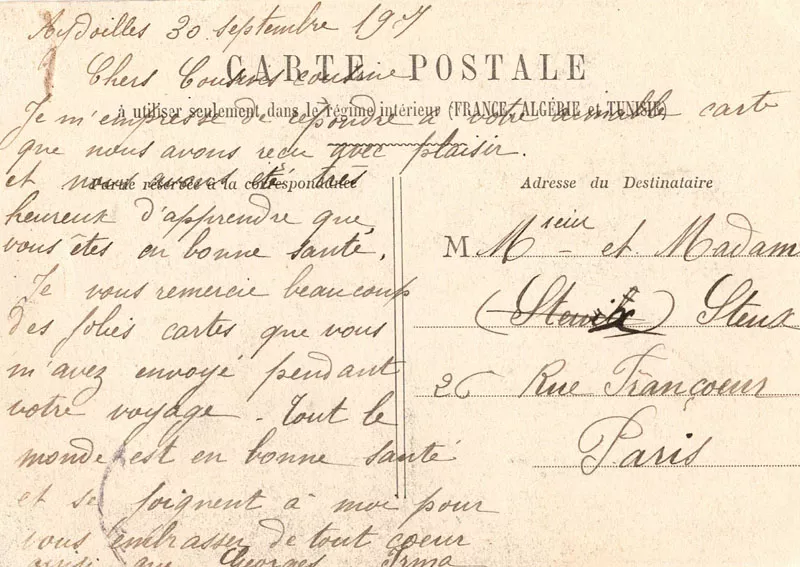 Aydoilles 30 septembre 1907
CARTE POSTALE
Chers Cousins cousine
à utiliser seulement dans le régime intérieur (FRANCE, ALGÉRIE et TUNISIE)
Je m'empresse de repondre à votre aimable carte
que nous avons reçu avec plaisir.
Partie réservée à la correspondance
et nous avons étés très
heureux d'apprendre que
vous êtes en bonne santé.
Je vous remercie beaucoup
des jolies cartes que vous
m'avez envoyé pendant
votre voyage. Tout le
monde est en bonne santé
et se joignent à moi pour
vous embrasser de tout coeur
ainsi que Georges Irma
Adresse du Destinataire
M Msieur et Madam
() Steux
26 Rue Françoeur
Paris